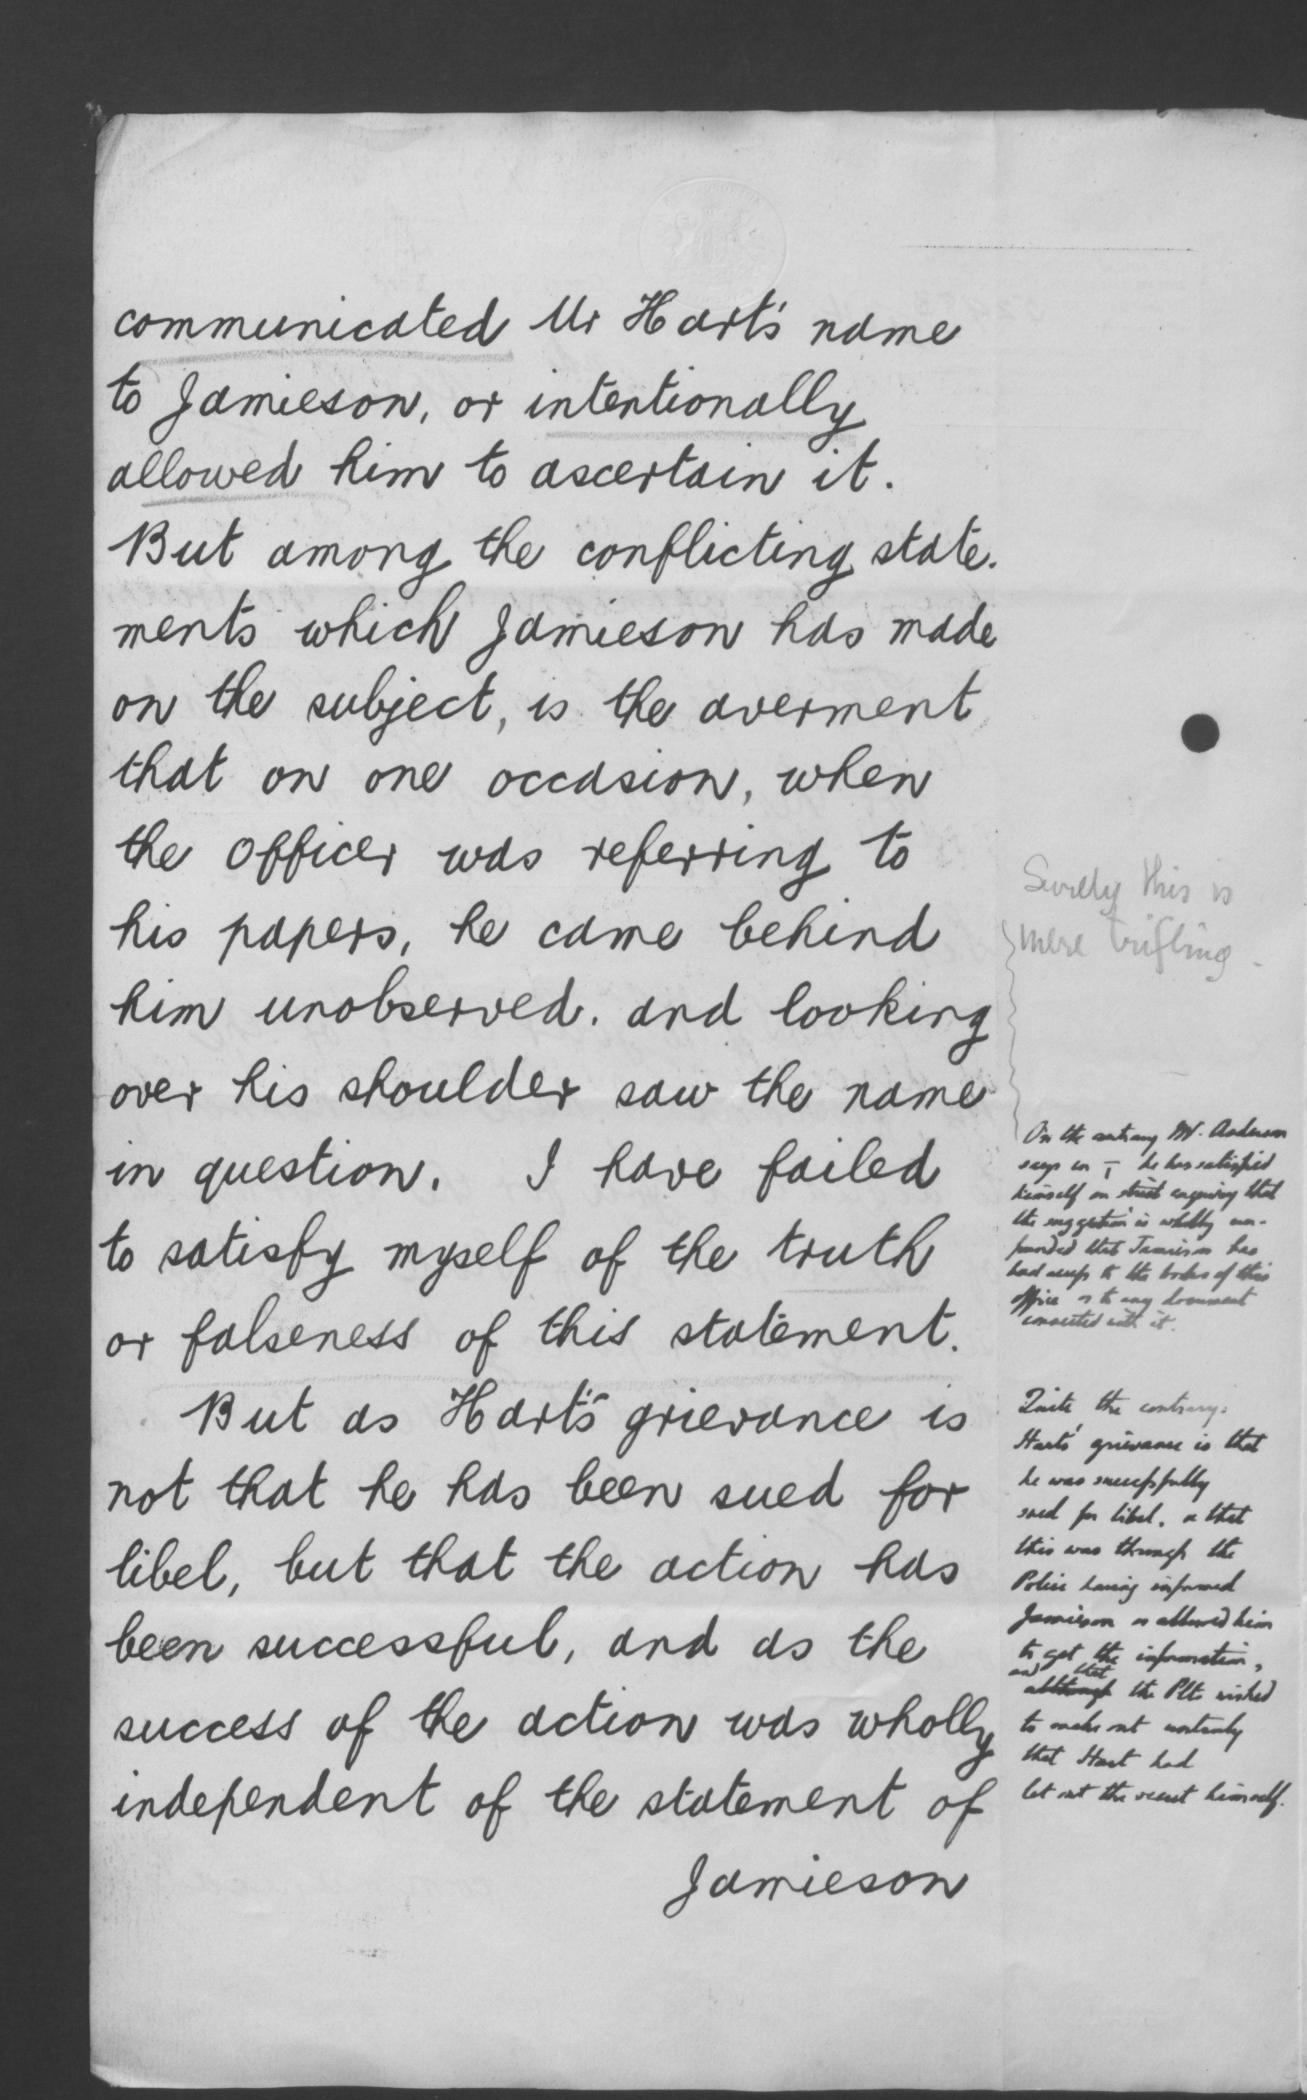 communicated Mr Hart's name
to Jamieson, or intentionally
allowed him to ascertain it.
But among the conflicting state.
ments which Jamieson has made
on the subject, is the averment
that on one occasion, when
the officer was referring to
his papers, he came behind
him unobserved. and looking
over his shoulder saw the name
in question. I have failed
to satisfy myself of the truth
or falseness of this statement.
But as Hart's grievance is
not that he has been sued for
libel, but that the action has
been successful, and as the
success of the action was wholly
independent of the statement of
Jamieson
Surely this is
mere trifling.
On the contrary Mr. Anderson
says in he has satisfied
himself on strict enquiry that
the suggestion is wholly un-
founded that Jamieson has
had access to the books of this
office or to any document
connected with it.
Quite the contrary.
Harts' grievance is that
he was successfully
sued for libel, & that
this was through the
Police having informed
Jamieson or allowed him
to get the information,
and that
although the wished
to make out
that Hart had
let out the secret himself.